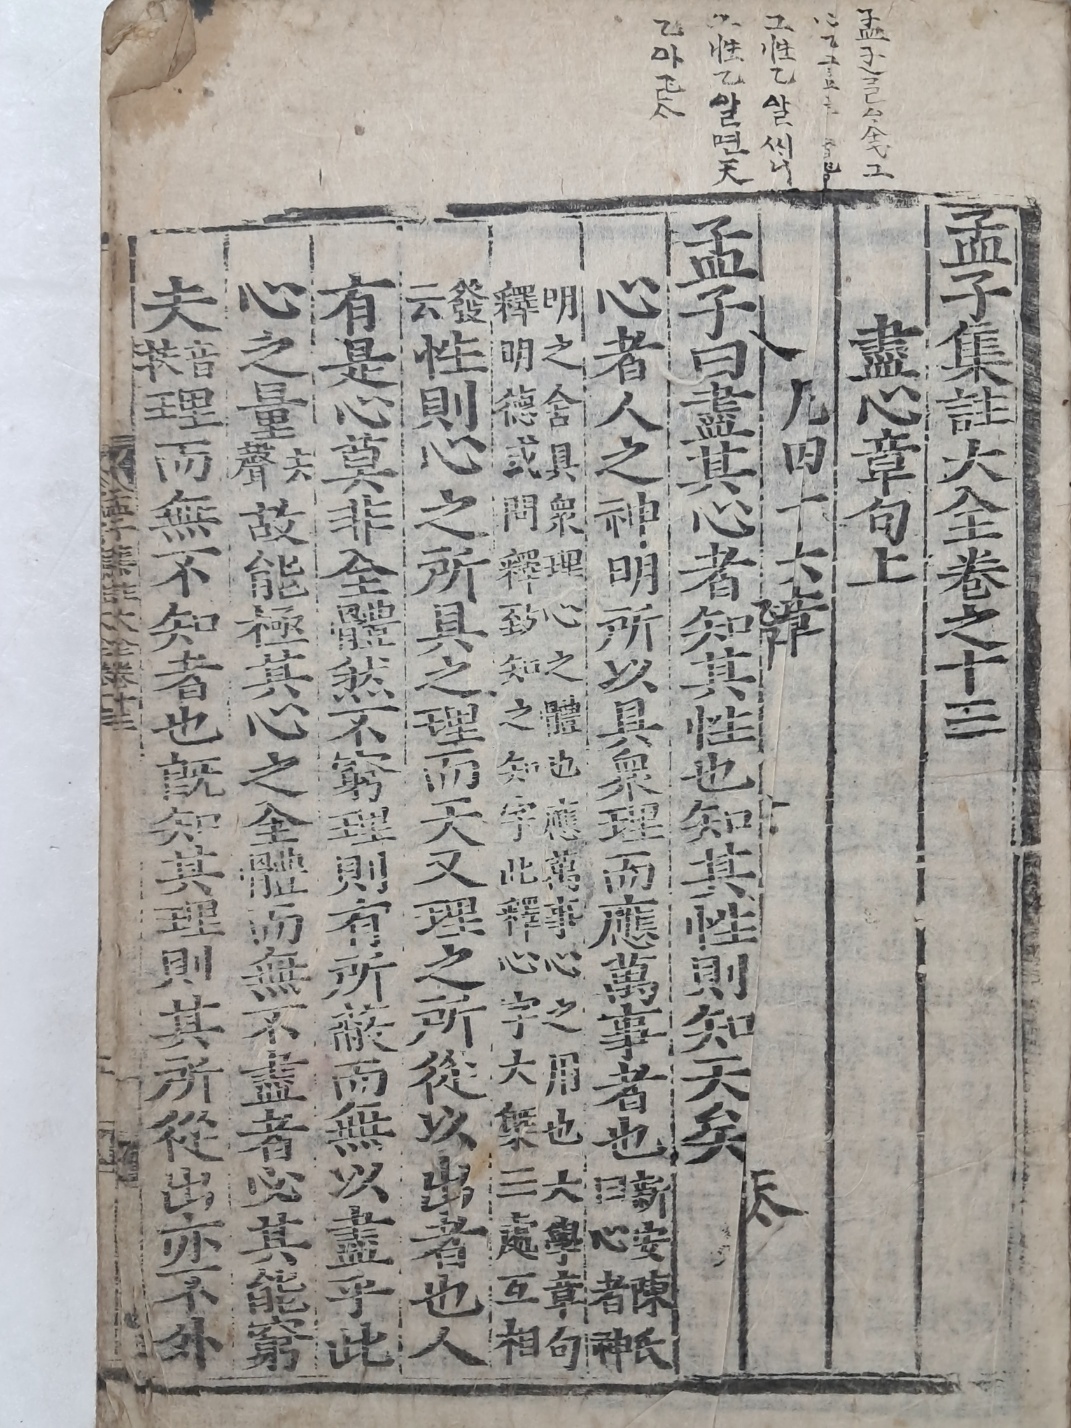 孟子
그性乙알씨니
그性乙알면天
乙아
孟子集註大全卷之十三
盡心章句上
凡四十六章
孟子曰盡其心者知其性也知其性則知天矣
心者人之神明所以具衆理而應萬事者也新安陳氏曰心者神
明之舍具衆理心之體也應萬事心之用也大學章句
釋明德或問釋致知之知字此釋心字大槩三處互相
發云性則心之所具之理而天又理之所從以出者也人
有是心莫非全體然不窮理則有所蔽而無以盡乎此
心之量去聲故能極其心之全體而無不盡者必其能窮
夫音扶理而無不知者也旣知其理則其所從出亦不外
孟子集註大全卷十三